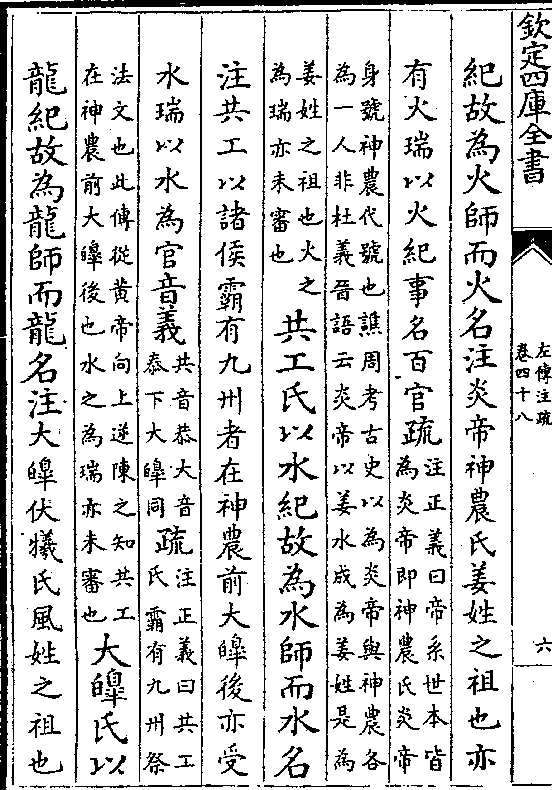 欽定四庫全書
左傳注疏
卷四十八
六
紀故為火師而火名注炎帝神農氏姜姓之祖也亦
有火瑞以火紀事名百官疏注正義曰帝系世本皆
為炎帝即神農氏炎帝
身號神農代號也譙周考古史以為炎帝與神農各
為一人非杜義晉語云炎帝以姜水成為姜姓是為
姜姓之祖也火之
為瑞亦未審也
共工氏以水紀故為水師而水名
注共工以諸侯霸有九州者在神農前大皥後亦受
水瑞以水為官音義共音恭大音
泰下大皥同
疏注正義曰共工
氏霸有九州祭
法文也此傳從黄帝向上逆陳之知共工
在神農前大皥後也水之為瑞亦未審也
大皥氏以
龍紀故為龍師而龍名注大皥伏犧氏風姓之祖也